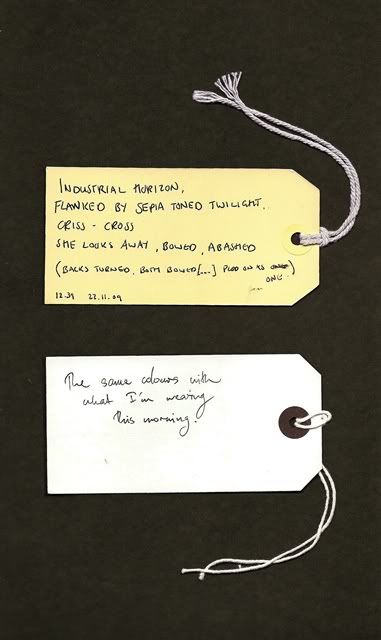 INDUSTRIAL HORIZON,
FLANKED BY SEPIA TONED TWILIGHT.
CRISS - CROSS
SHE LOOKS AWAY, BOWED, ABASHED
(BACKS TURNED, BOTH BOWED [...] PLOD ON AS
ONE.)
12.39 22.11.09
The same colours with
what I'm wearing
this morning.